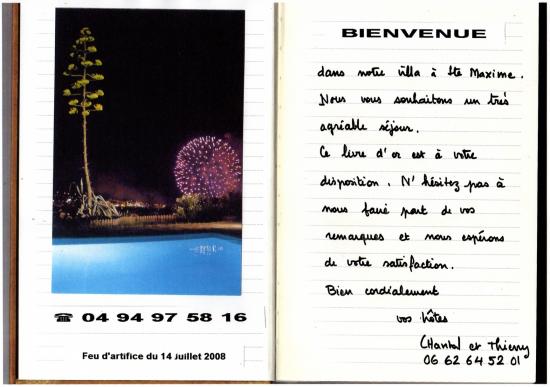 ☎ 04 94 97 58 16
Feu d'artifice du 14 Juillet 2008
BIENVENUE
dans notre villa à Ste Maxime.
Nous vous souhaitons un très
agréable séjour.
Ce livre d'or est à votre
disposition. N'hésitez pas à
nous faire part de vos
remarques et nous espérons
de votre satisfaction.
Bien cordialement
vos hôtes
Chantal et Thierry
06 62 64 52 01